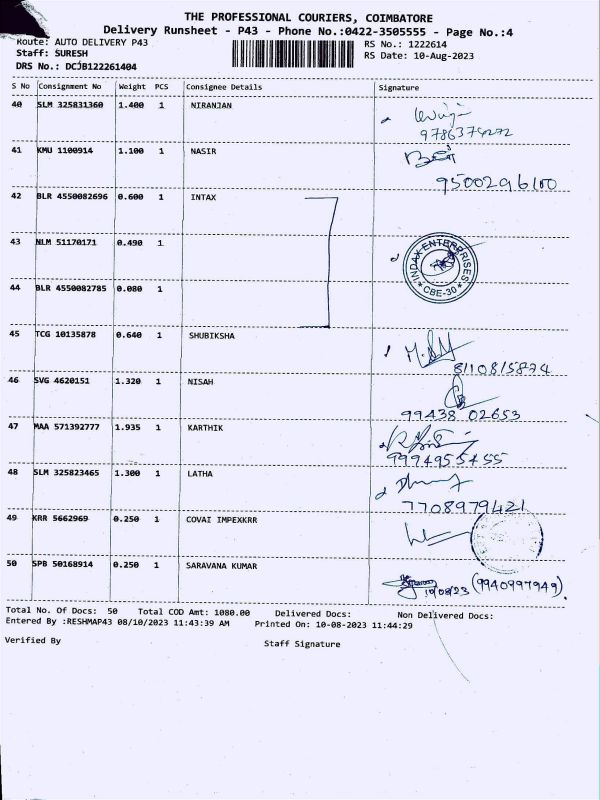 THE PROFESSIONAL COURIERS, COIMBATORE
Delivery Runsheet - P43 - Phone No.:0422-3505555 - Page No.:4
Route: AUTO DELIVERY P43
Staff: SURESH
DRS No.: DCJB122261404
RS No.: 1222614
RS Date: 10-Aug-2023
S No Consignment No Weight PCS Consignee Details Signature
40 SLM 325831360 1.400 1 NIRANJAN
41 KMU 1100914 1.100 1 NASIR
9500296100
42 BLR 4550082696 0.600 1 INTAX
43 NLM 51170171 0.490 1
INDAX ENTERPRISES
* CBE-30 *
44 BLR 4550082785 0.080 1
45 TCG 10135878 0.640 1 SHUBIKSHA
8110815874
46 SVG 4620151 1.320 1 NISAH
99438 02653
47 MAA 571392777 1.935 1 KARTHIK
9994955455
48 SLM 325823465 1.300 1 LATHA
7708979421
49 KRR 5662969 0.250 1 COVAI IMPEXKRR
50 SPB 50168914 0.250 1 SARAVANA KUMAR
10/08/23 (9940997949).
Total No. Of Docs: 50 Total COD Amt: 1080.00 Delivered Docs: Non Delivered Docs:
Entered By :RESHMAP43 08/10/2023 11:43:39 AM Printed On: 10-08-2023 11:44:29
Verified By Staff Signature